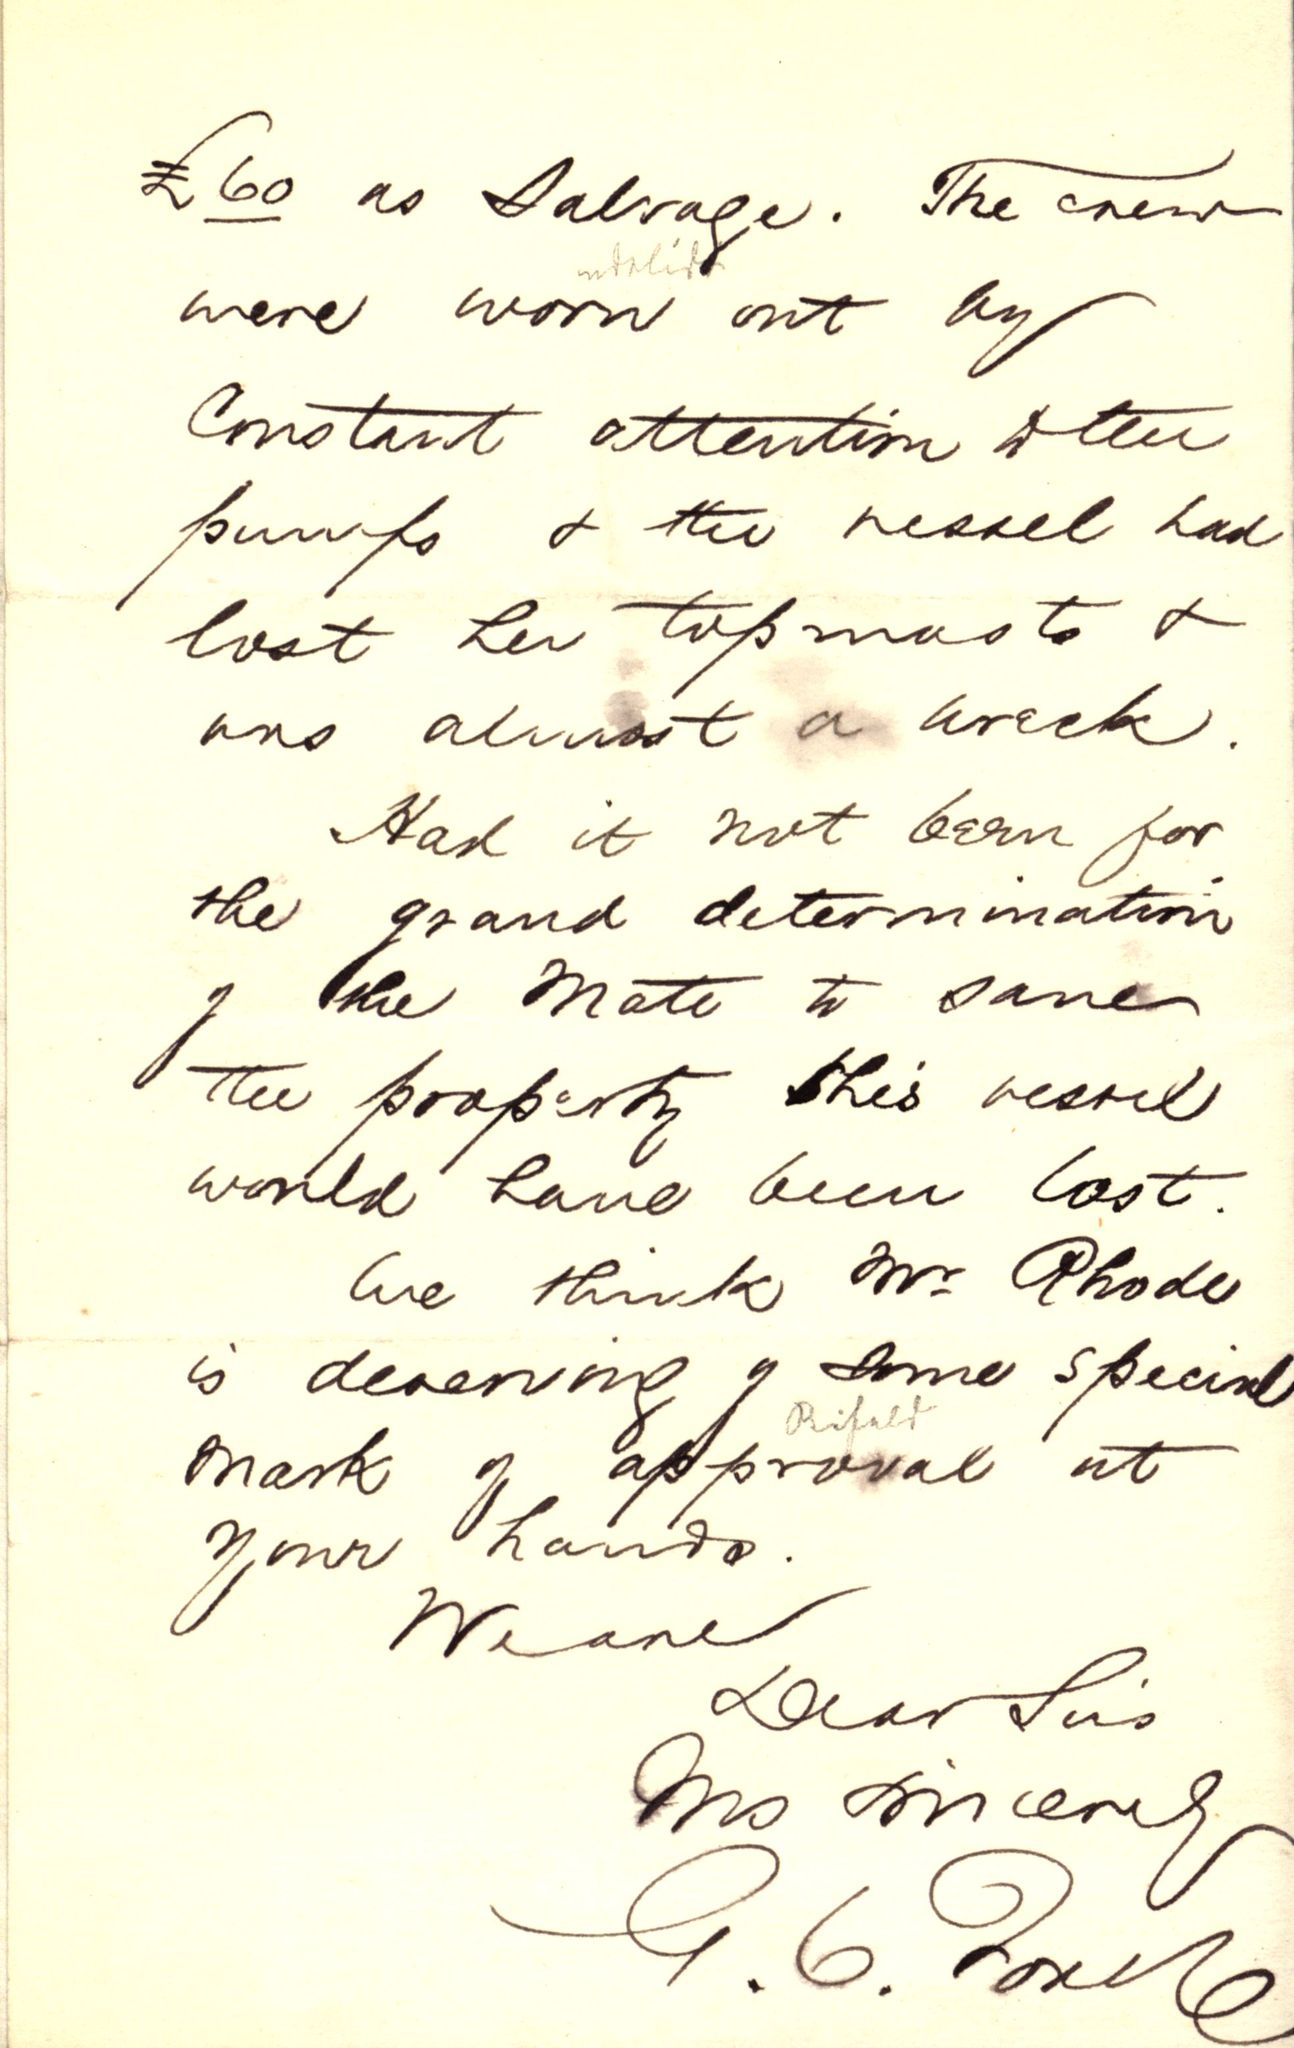 £60 as Salvage. The crew
were worn out by
Constant attention to the
pumps & the vessel had
lost her topmasts &
was almost a wreck.
Had it not been for
the grand determination
of the Mate to save
the property this vessel
would have been lost.
We think Mr. Rhode
is deserving of some special
Mark of approval at
your hands.
We are
Dear Sirs
Yrs sincerely
G. C. Fox